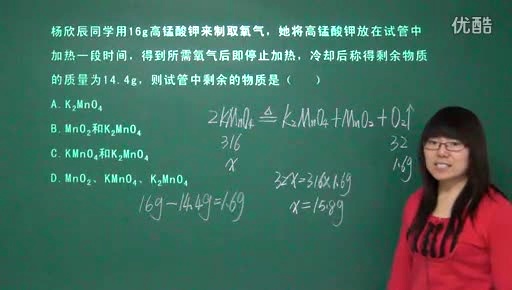 优酷
杨欣辰同学用16g高锰酸钾来制取氧气，她将高锰酸钾放在试管中
加热一段时间，得到所需氧气后即停止加热，冷却后称得剩余物质
的质量为14.4g，则试管中剩余的物质是（　　）
A. K₂MnO₄
B. MnO₂和K₂MnO₄
C. KMnO₄和K₂MnO₄
D. MnO₂、KMnO₄、K₂MnO₄
2KMnO₄ ≜ K₂MnO₄+MnO₂+O₂↑
316 32
x 1.6g
32x=316×1.6g
16g-14.4g=1.6g x=15.8g